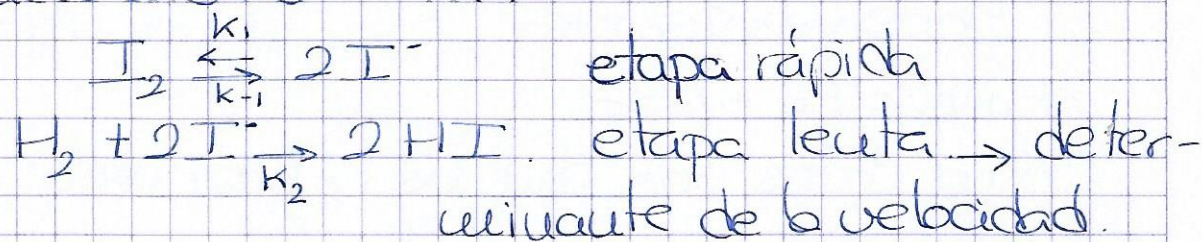 I₂ ⇄ 2I⁻ etapa rápida
K₁
K₋₁
H₂ + 2I⁻ → 2HI. etapa lenta → deter-
K₂
minante de la velocidad.